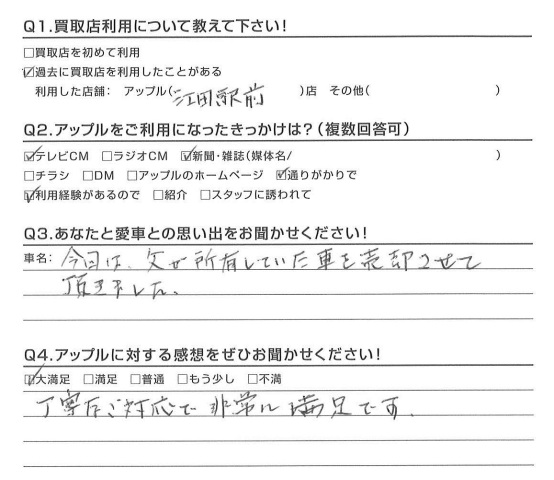 Q1.買取店利用について教えて下さい!
□買取店を初めて利用
☑過去に買取店を利用したことがある
利用した店舗: アップル(江田駅前)店 その他( )
Q2.アップルをご利用になったきっかけは?(複数回答可)
☑テレビCM □ラジオCM ☑新聞・雑誌(媒体名/ )
□チラシ □DM □アップルのホームページ ☑通りがかりで
☑利用経験があるので □紹介 □スタッフに誘われて
Q3.あなたと愛車との思い出をお聞かせください!
車名: 今日は、父が所有していた車を売却させて
頂きました。
Q4.アップルに対する感想をぜひお聞かせください!
☑大満足 □満足 □普通 □もう少し □不満
丁寧なご対応で非常に満足です.